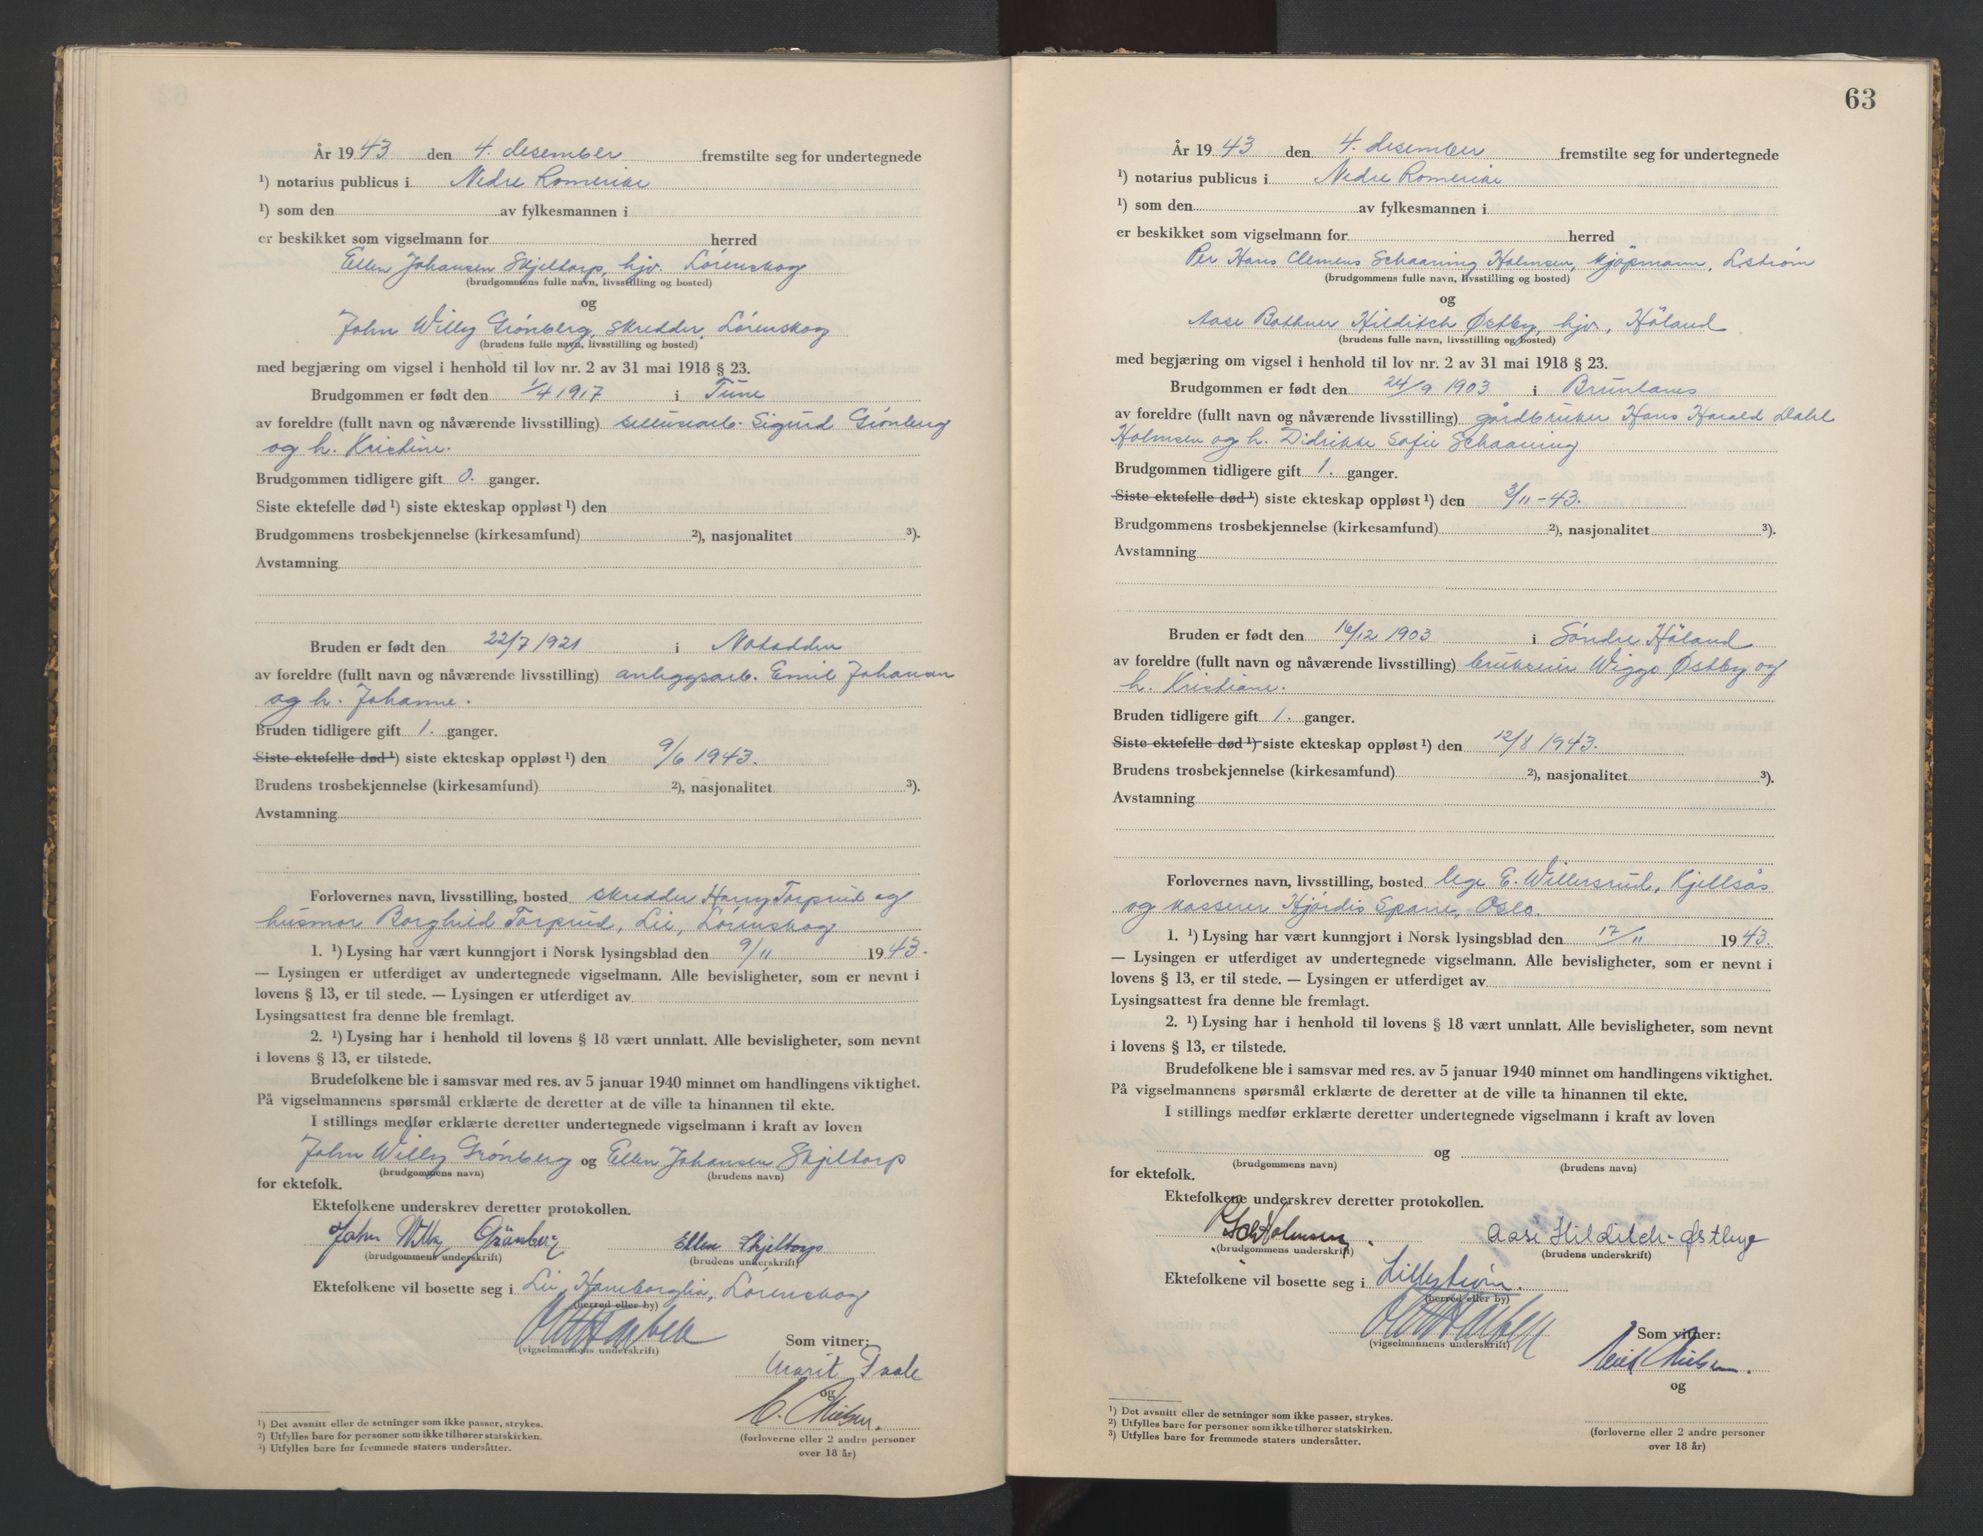 År 1943 den 4. desember fremstilte seg for undertegnede
¹) notarius publicus i Nedre Romerike
¹) som den av fylkesmannen i
er beskikket som vigselmann for herred
Ellen Johansen Skjeltorp, hjv. Lørenskog
(brudgommens fulle navn, livsstilling og bosted)
og
John Willy Grønberg, skredder, Lørenskog
(brudens fulle navn, livsstilling og bosted)
med begjæring om vigsel i henhold til lov nr. 2 av 31 mai 1918 § 23.
Brudgommen er født den 1/4 1917 i Tune
av foreldre (fullt navn og nåværende livsstilling) cellulosearb. Sigurd Grønberg
og h. Kristine.
Brudgommen tidligere gift 0. ganger.
Siste ektefelle død ¹) siste ekteskap oppløst ¹) den
Brudgommens trosbekjennelse (kirkesamfund) ²), nasjonalitet ³).
Avstamning
Bruden er født den 22/7 1921 i Notodden
av foreldre (fullt navn og nåværende livsstilling) anleggsarb. Emil Johansen
og h. Johanne.
Bruden tidligere gift 1. ganger.
Siste ektefelle død ¹) siste ekteskap oppløst ¹) den 9/6 1943.
Brudens trosbekjennelse (kirkesamfund) ²), nasjonalitet ³).
Avstamning
Forlovernes navn, livsstilling, bosted skredder Harry Torprud og
husmor Borghild Torprud, Lie, Lørenskog
1. ¹) Lysing har vært kunngjort i Norsk lysingsblad den 9/11 1943.
— Lysingen er utferdiget av undertegnede vigselmann. Alle bevisligheter, som er nevnt i
lovens § 13, er til stede. — Lysingen er utferdiget av
Lysingsattest fra denne ble fremlagt.
2. ¹) Lysing har i henhold til lovens § 18 vært unnlatt. Alle bevisligheter, som nevnt
i lovens § 13, er tilstede.
Brudefolkene ble i samsvar med res. av 5 januar 1940 minnet om handlingens viktighet.
På vigselmannens spørsmål erklærte de deretter at de ville ta hinannen til ekte.
I stillings medfør erklærte deretter undertegnede vigselmann i kraft av loven
John Willy Grønberg og Ellen Johansen Skjeltorp
(brudgommens navn) (brudens navn)
for ektefolk.
Ektefolkene underskrev deretter protokollen.
John Willy Grönberg Ellen Skjeltorp
(brudgommens underskrift) (brudens underskrift)
Ektefolkene vil bosette seg i Lie, Haneborglia, Lørenskog
(herred eller by)
(vigselmannens underskrift)
Som vitner:
Marit
og
C. Nielsen.
(forloverne eller 2 andre personer
over 18 år)
¹) Det avsnitt eller de setninger som ikke passer, strykes.
²) Utfylles bare for personer som ikke tilhører statskirken.
³) Utfylles bare for fremmede staters undersåtter.
63
År 1943 den 4. desember fremstilte seg for undertegnede
¹) notarius publicus i Nedre Romerike
¹) som den av fylkesmannen i
er beskikket som vigselmann for herred
Per Hans Clemens Schaaning Holmsen, kjøpmann, Lstrøm
(brudgommens fulle navn, livsstilling og bosted)
og
Aase Bothner Hilditch Østby, hjv., Höland
(brudens fulle navn, livsstilling og bosted)
med begjæring om vigsel i henhold til lov nr. 2 av 31 mai 1918 § 23.
Brudgommen er født den 24/9 1903 i Brunlanes
av foreldre (fullt navn og nåværende livsstilling) gårdbruker Hans Harald Dahl
Holmsen og h. Didrikke Sofie Schaaning
Brudgommen tidligere gift 1. ganger.
Siste ektefelle død ¹) siste ekteskap oppløst ¹) den 3/11-43.
Brudgommens trosbekjennelse (kirkesamfund) ²), nasjonalitet ³).
Avstamning
Bruden er født den 16/12 1903 i Søndre Höland
av foreldre (fullt navn og nåværende livsstilling) brukseier Wiggo Østby og
h. Kristiane.
Bruden tidligere gift 1. ganger.
Siste ektefelle død ¹) siste ekteskap oppløst ¹) den 12/8 1943.
Brudens trosbekjennelse (kirkesamfund) ²), nasjonalitet ³).
Avstamning
Forlovernes navn, livsstilling, bosted lege E. Willersrud, Kjellsås
og kasserer Hjørdis Spane, Oslo.
1. ¹) Lysing har vært kunngjort i Norsk lysingsblad den 17/11 1943.
— Lysingen er utferdiget av undertegnede vigselmann. Alle bevisligheter, som er nevnt i
lovens § 13, er til stede. — Lysingen er utferdiget av
Lysingsattest fra denne ble fremlagt.
2. ¹) Lysing har i henhold til lovens § 18 vært unnlatt. Alle bevisligheter, som nevnt
i lovens § 13, er tilstede.
Brudefolkene ble i samsvar med res. av 5 januar 1940 minnet om handlingens viktighet.
På vigselmannens spørsmål erklærte de deretter at de ville ta hinannen til ekte.
I stillings medfør erklærte deretter undertegnede vigselmann i kraft av loven
og
(brudgommens navn) (brudens navn)
for ektefolk.
Ektefolkene underskrev deretter protokollen.
Holmsen. Aase Hilditch-Østbye
(brudgommens underskrift) (brudens underskrift)
Ektefolkene vil bosette seg i Lillestrøm.
(herred eller by)
(vigselmannens underskrift)
Som vitner:
Nielsen.
og
(forloverne eller 2 andre personer
over 18 år)
¹) Det avsnitt eller de setninger som ikke passer, strykes.
²) Utfylles bare for personer som ikke tilhører statskirken.
³) Utfylles bare for fremmede staters undersåtter.